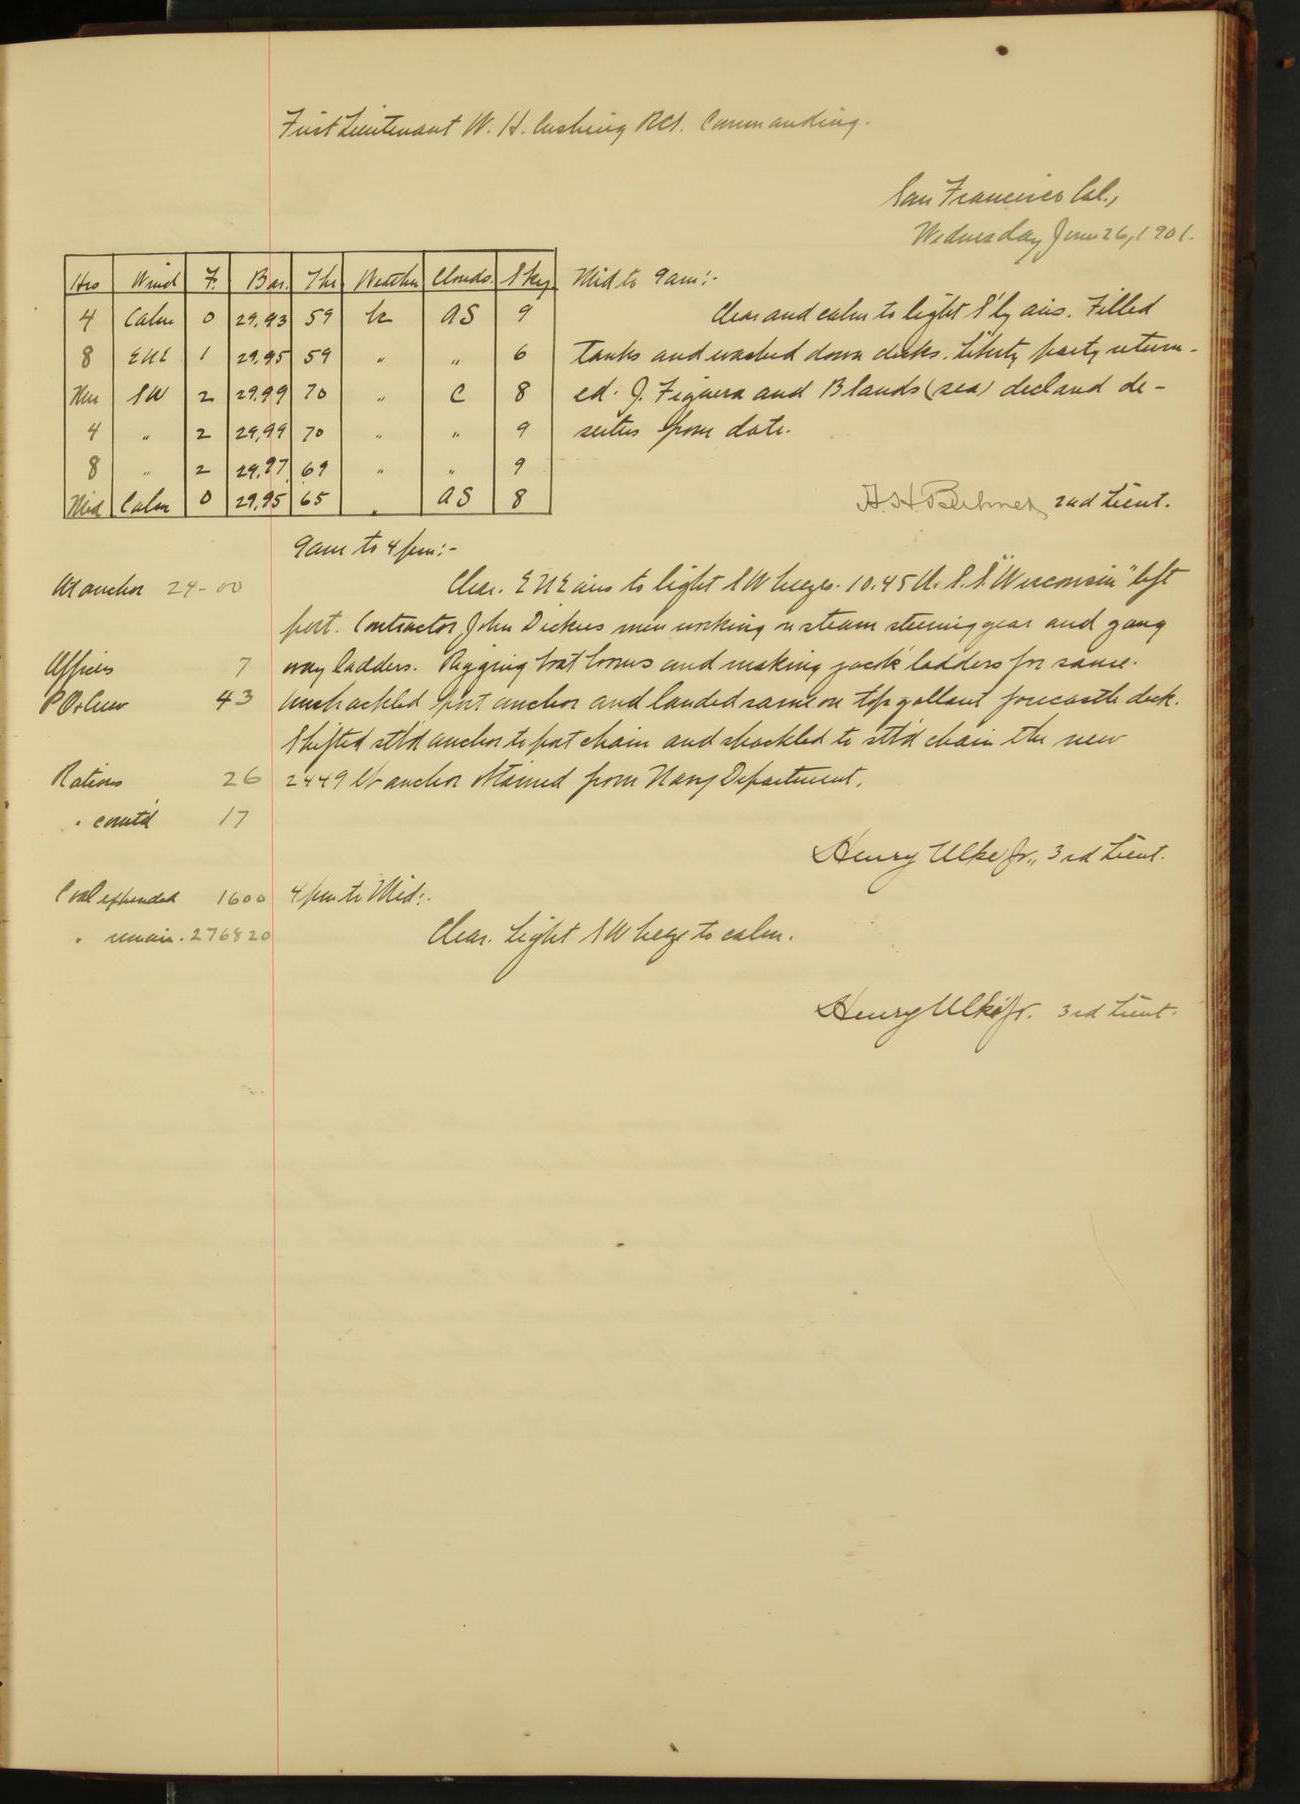 First Lieutenant W. H. Cushing RCS. Commanding.
San Francisco Cal.,
Wednesday June 26, 1901.
Hrs Wind F. Bar. Thr Weather Clouds Sky
4 Calm 0 29,93 59 bc AS 9
8 ENE 1 29,95 59 " " 6
Mer SW 2 29,99 70 " C 8
4 " 2 29,99 70 " " 9
8 " 2 29,97 69 " " 9
Mid Calm 0 29,95 65 " AS 8
Mid to 9am:-
Clear and calm to light S'ly airs. Filled
tanks and washed down decks. Liberty party return-
ed. J. Figuera and B Lands (sea) declared de-
serters from date.
2nd Lieut.
9am to 4 pm:-
At anchor 24-00
Clear. ENE airs to light SW breezes. 10.45 U. S. S. "Wisconsin" left
port. Contractor John Dickies men working on steam steering gear and gang
Officers 7
way ladders. Rigging boat booms and making jack ladders for same.
P.O. & Crew 43
Unshackled port anchor and landed same on topgallant forecastle deck.
Shifted stb'd anchor to port chain and shackled to stb'd chain the new
Rations 26
2449 lb anchor obtained from Navy Department.
" comt'd 17
Henry Ulke Jr., 3rd Lieut.
Coal expended 1600
4 pm to Mid:-
" remain. 276820
Clear. Light SW breeze to calm.
Henry Ulke Jr. 3rd Lieut.